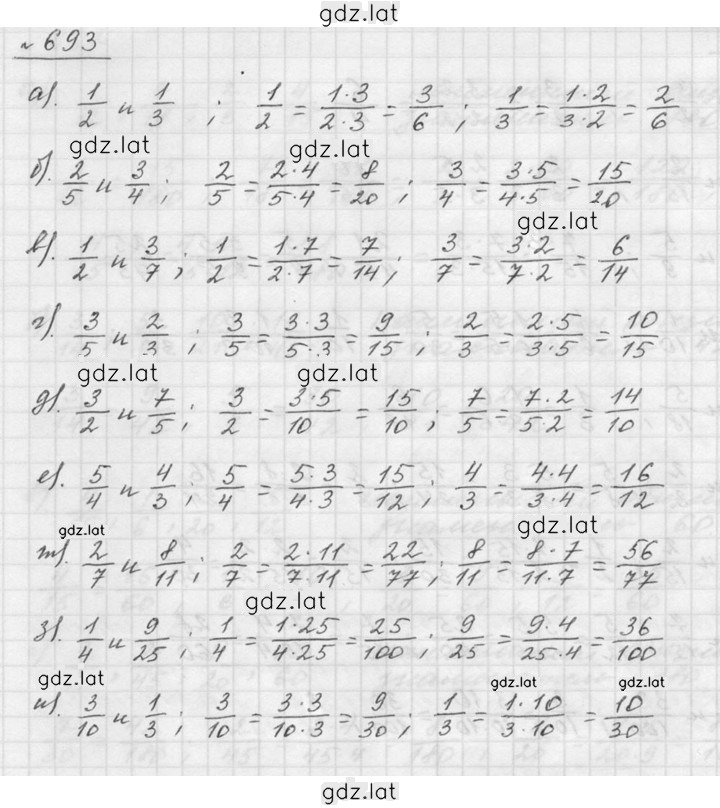 gdz.lat
№ 693
а). 1/2 и 1/3 ; 1/2 = 1·3/2·3 = 3/6 ; 1/3 = 1·2/3·2 = 2/6
gdz.lat gdz.lat
б). 2/5 и 3/4 ; 2/5 = 2·4/5·4 = 8/20 ; 3/4 = 3·5/4·5 = 15/20
gdz.lat
в). 1/2 и 3/7 ; 1/2 = 1·7/2·7 = 7/14 ; 3/7 = 3·2/7·2 = 6/14
г). 3/5 и 2/3 ; 3/5 = 3·3/5·3 = 9/15 ; 2/3 = 2·5/3·5 = 10/15
gdz.lat gdz.lat
д). 3/2 и 7/5 ; 3/2 = 3·5/10 = 15/10 ; 7/5 = 7·2/5·2 = 14/10
е). 5/4 и 4/3 ; 5/4 = 5·3/4·3 = 15/12 ; 4/3 = 4·4/3·4 = 16/12
gdz.lat gdz.lat
ж). 2/7 и 8/11 ; 2/7 = 2·11/7·11 = 22/77 ; 8/11 = 8·7/11·7 = 56/77
gdz.lat
з). 1/4 и 9/25 ; 1/4 = 1·25/4·25 = 25/100 ; 9/25 = 9·4/25·4 = 36/100
gdz.lat gdz.lat gdz.lat
и). 3/10 и 1/3 ; 3/10 = 3·3/10·3 = 9/30 ; 1/3 = 1·10/3·10 = 10/30
gdz.lat